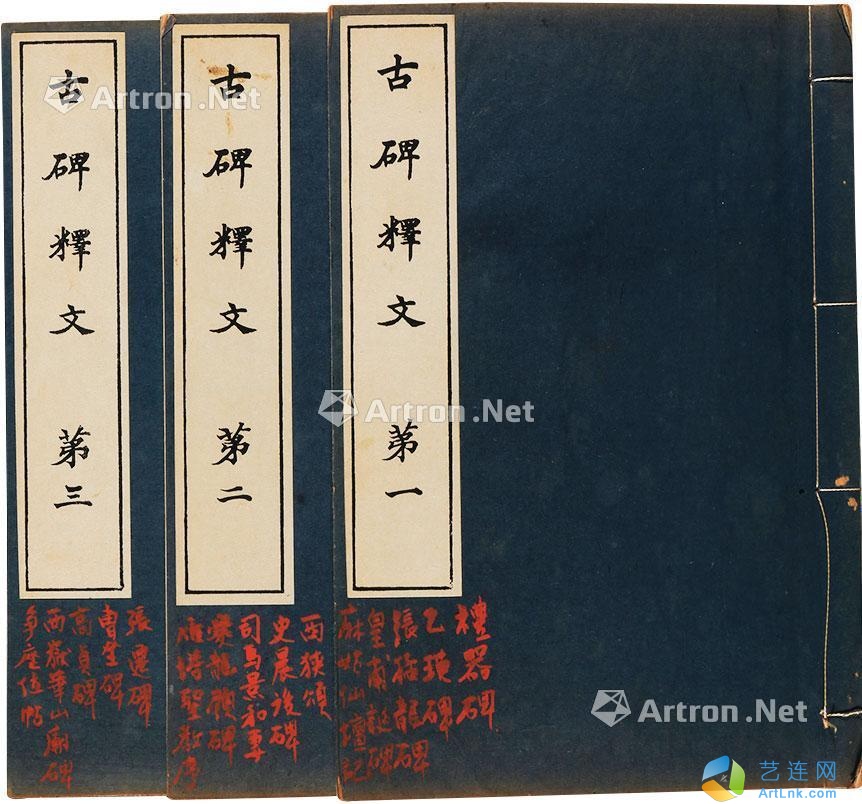 古碑釋文 第一
禮器碑
乙瑛碑
張猛龍碑
皇甫誕碑
麻姑仙壇記
古碑釋文 第二
西狹頌
史晨後碑
司馬景和妻
爨龍顏碑
雁塔聖教序
古碑釋文 第三
張遷碑
曹全碑
高貞碑
西嶽華山廟碑
爭座位帖
Artron.Net
Artron.Net
Artron.Net
Artron.Net
艺连网
ArtLnk.com